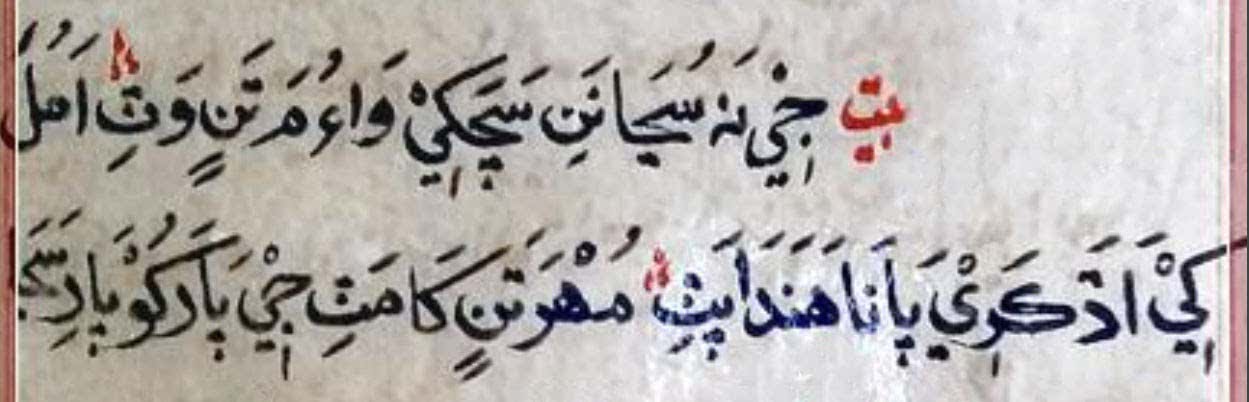 بيت جِيْ نَہ سُڃَانَنِ سَچَکِيْ وَاءُ مَ تَنٍ وَٽِ اَمُلُ
کِيْ اَڏَ ڪَرِيْ پَانَا هَنَدَا پَٽِ مُهْرَ تَنٍ کَا مَٽِ جِيْ پَارَکُوْ پَارِ